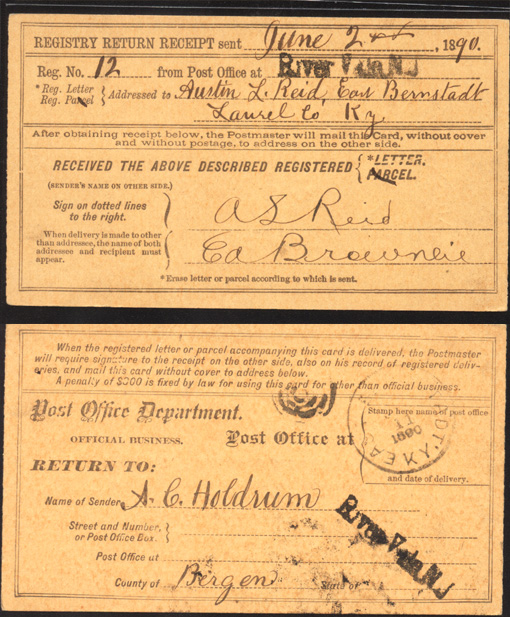 REGISTRY RETURN RECEIPT sent June 2nd, 1890.
Reg. No. 12 from Post Office at River Vale N.J
*Reg. Letter
Reg. Parcel } Addressed to Austin L. Reid, East Bernstadt
Laurel Co, Ky
After obtaining receipt below, the Postmaster will mail this Card, without cover
and without postage, to address on the other side.
RECEIVED THE ABOVE DESCRIBED REGISTERED { *LETTER.
PARCEL.
(SENDER'S NAME ON OTHER SIDE.)
Sign on dotted lines
to the right.
A L Reid
When delivery is made to other
than addressee, the name of both
addressee and recipient must
appear.
Ed Brownlie
*Erase letter or parcel according to which is sent.
When the registered letter or parcel accompanying this card is delivered, the Postmaster
will require signature to the receipt on the other side, also on his record of registered deliv-
eries, and mail this card without cover to address below.
A penalty of $300 is fixed by law for using this card for other than official business.
Post Office Department.
OFFICIAL BUSINESS.
Post Office at
Stamp here name of post office
and date of delivery.
1890
KY
RETURN TO:
Name of Sender, A. C. Holdrum
Street and Number,
or Post Office Box. }
River Vale, N.J
Post Office at
County of Bergen State of